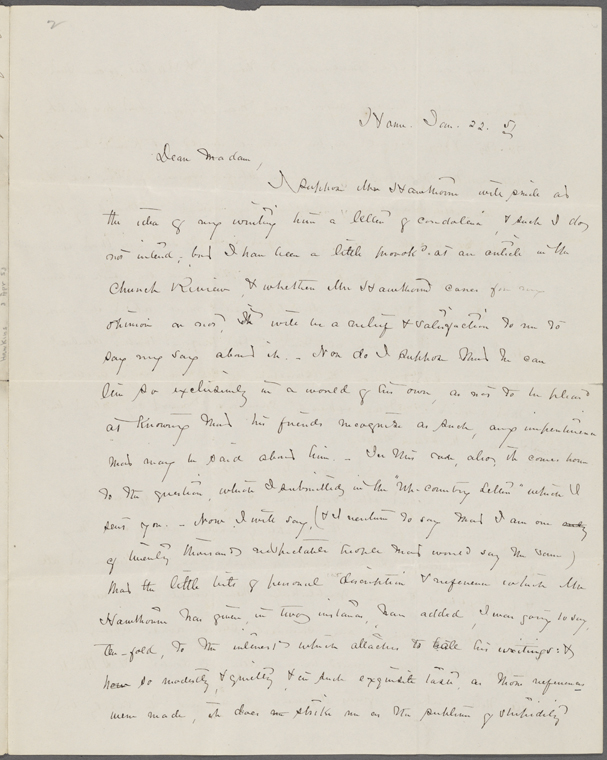 2
Jan. 22. 51
Dear Madam,
I suppose Mr. Hawthorne will smile at
the idea of my writing him a letter of condolence, & such I do
not intend; but I have been a little provokd. at an article in the
Church Review, & whether Mr Hawthorne cares for my
opinion or not, it will be a relief & satisfaction to me to
say my say about it. - Nor do I suppose that he can
live so exclusively in a world of his own, as not to be pleased
at knowing that his friends recognize as such, any impertinence
that may be said about him. - In this case, also, it comes home
to the question, which I submitted in the "Up-country Letter" which I
sent you. - Now I will say, (& I venture to say that I am one only
of twenty thousand respectable people that would say the same)
that the little bits of personal description & reference which Mr
Hawthorne has given, in two instances, have added, I was going to say,
ten-fold, to the interest which attaches to all his writings: &
now so modestly, & quietly & in such exquisite taste, as those references
were made, it does strike me as the sublime of stupidity